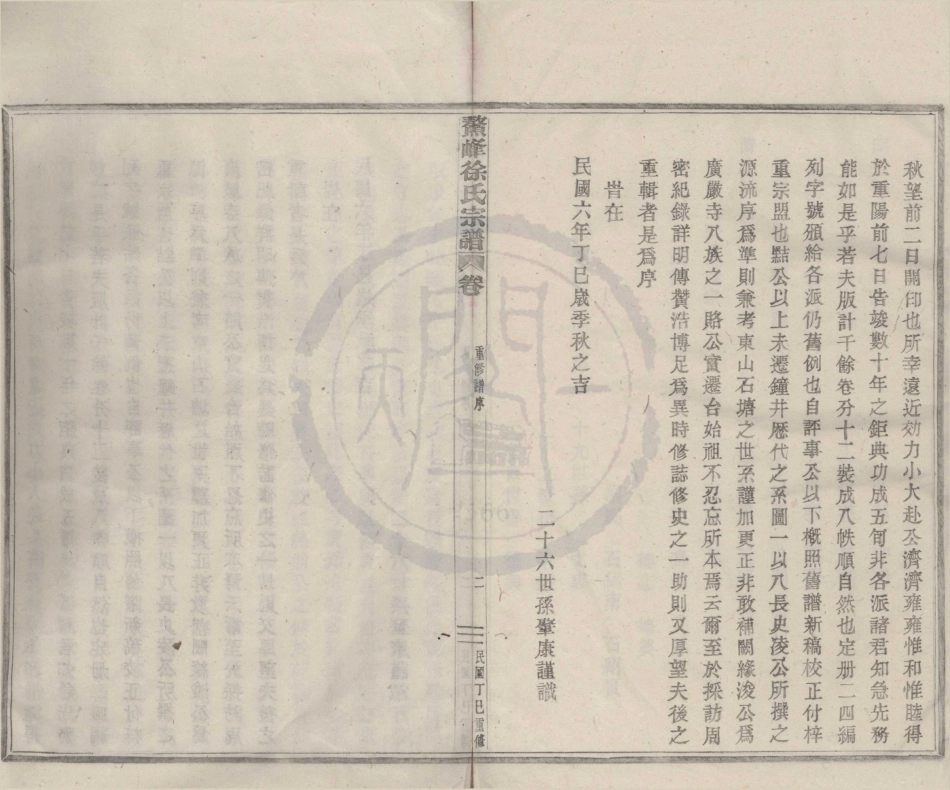 秋望前二日開印也所幸遠近効力小大赴公濟濟雍雍惟和惟睦得
於重陽前七日告竣數十年之鉅典功成五旬非各派諸君知急先務
能如是乎若夫版計千餘卷分十二裝成八帙順自然也定册二四編
列字號頒給各派仍舊例也自評事公以下概照舊譜新稿校正付梓
重宗盟也點公以上未遷鐘井歷代之系圖一以八長史凌公所撰之
源流序爲準則兼考東山石塘之世系謹加更正非敢補闕緣浚公爲
廣嚴寺八族之一賂公實遷台始祖不忍忘所本焉云爾至於採訪周
密紀錄詳明傳贊浩博足爲異時修誌修史之一助則又厚望夫後之
重輯者是爲序
旹在
民國六年丁巳歲季秋之吉
二十六世孫肇康謹識
鰲峰徐氏宗譜 卷
重修譜序
二
民國丁巳重修